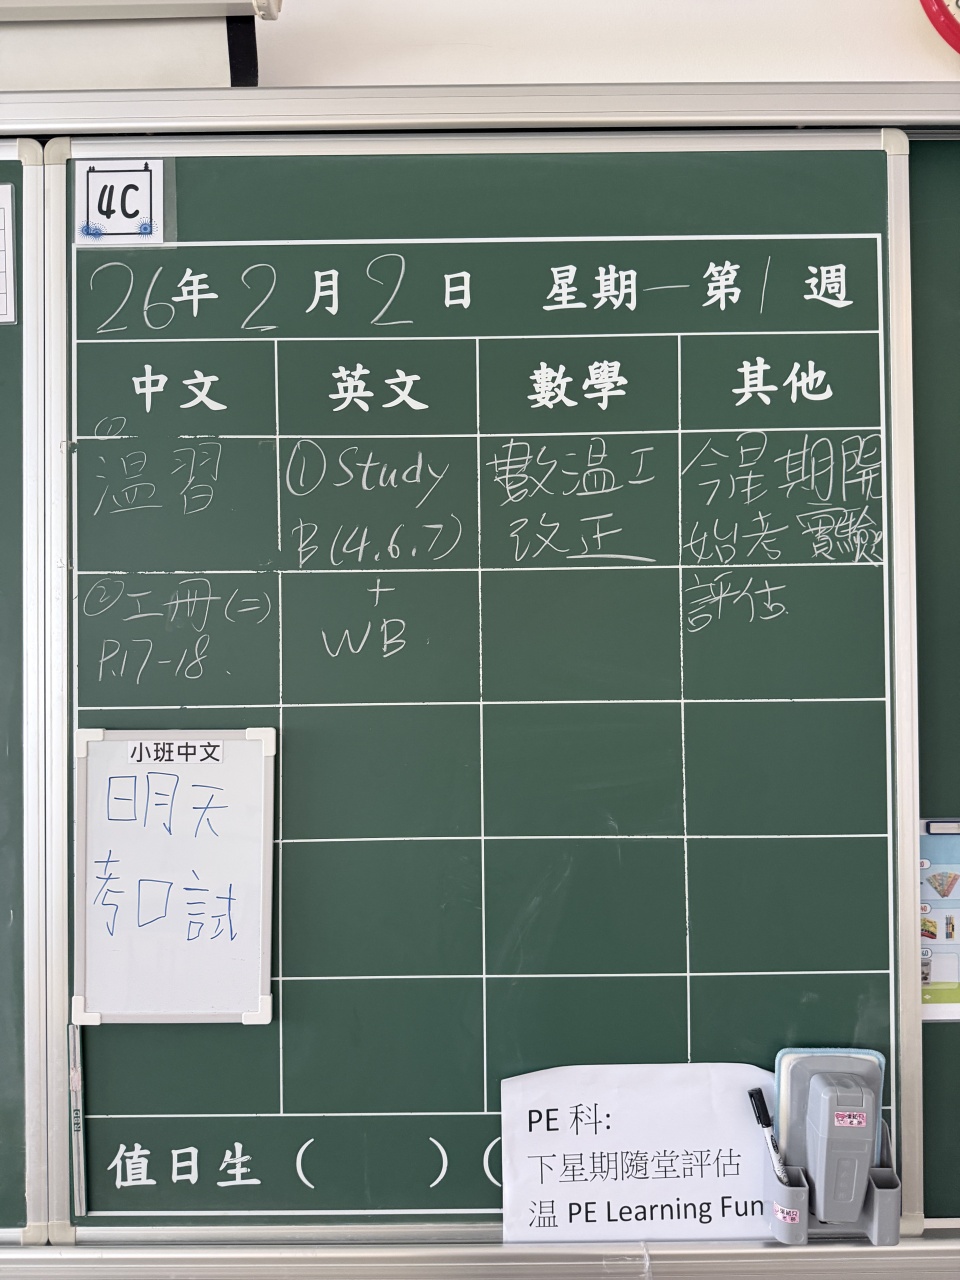 4C
26年2月2日 星期一第1週
中文
英文
數學
其他
①
温習
②工冊(二)
P.17-18.
①Study
B(4.6.7)
+
WB.
數温工
改正
今星期開
始考實驗
評估.
小班中文
明天
考口試
值日生( )(
PE 科:
下星期隨堂評估
温 PE Learning Fun